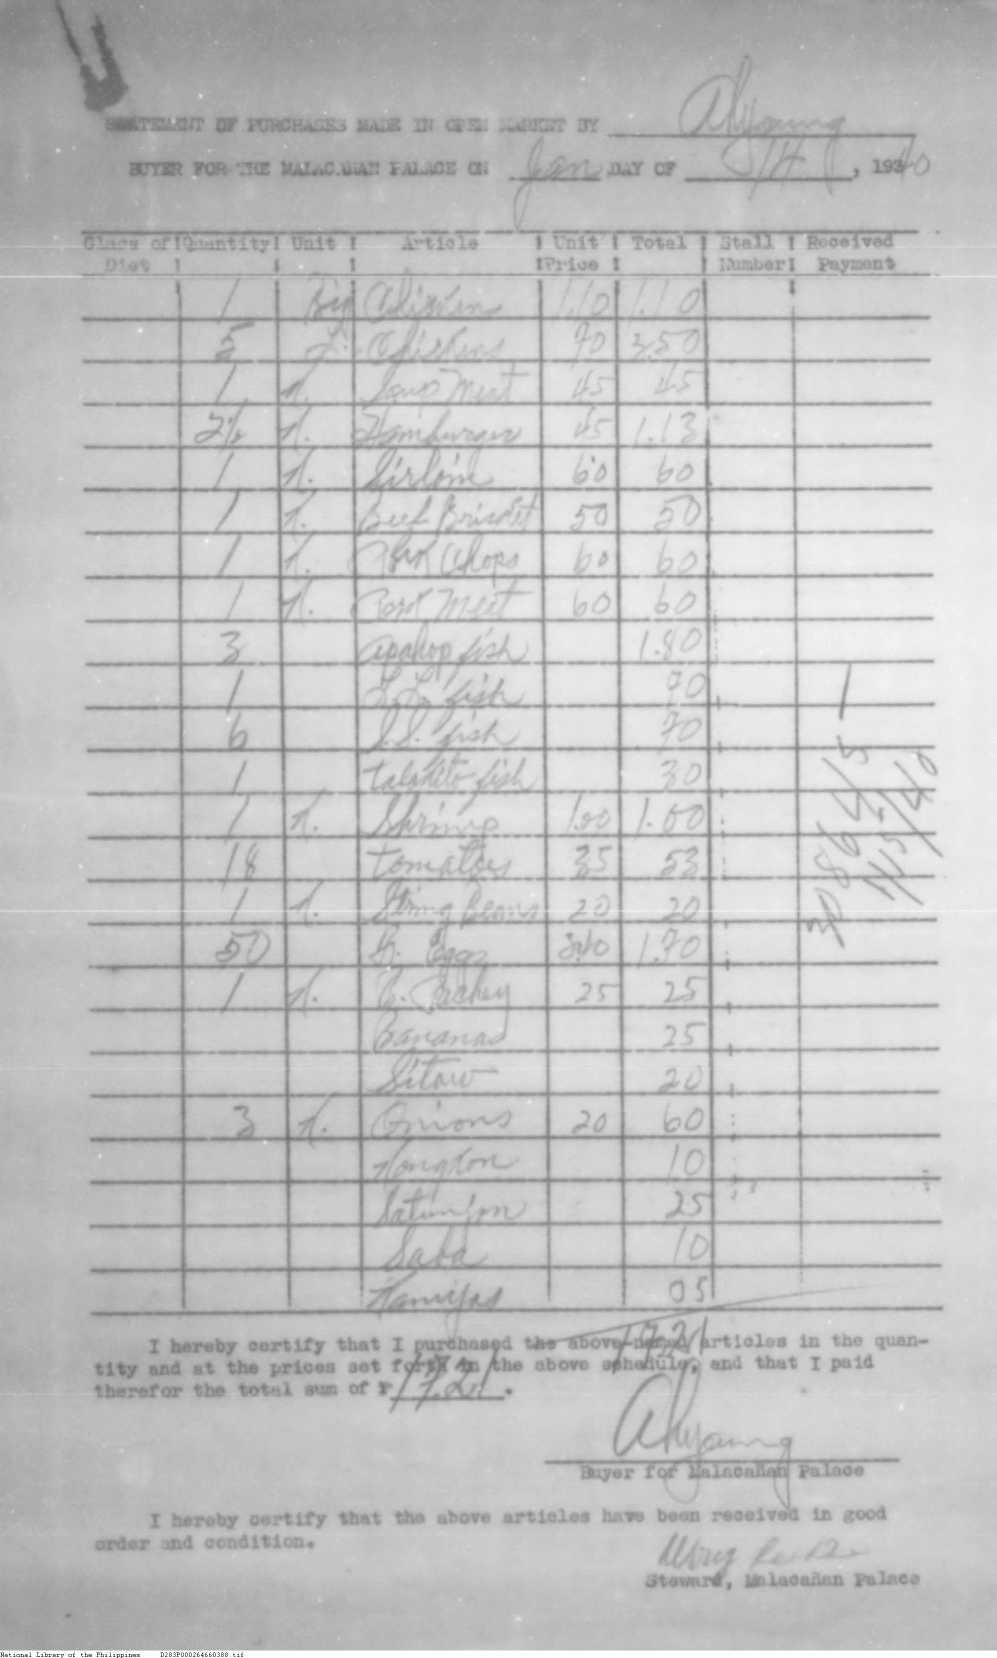 STATEMENT OF PURCHASES MADE IN OPEN MARKET BY Ahyoung
BUYER FOR THE MALACAÑAN PALACE ON Jan DAY OF 14, 1940
Class of Diet Quantity Unit Article Unit Price Total Stall Number Received Payment
1 Big Chicken 1.10 1.10
5 Chickens 70 3.50
1 K. Soup Meat 45 45
2½ K. Hamburger 45 1.13
1 K. Sirloin 60 60
1 K. Beef Brisket 50 50
1 K. Pork Chops 60 60
1 K. Pork Meat 60 60
3 apahap fish 1.80
1 L.L. fish 70
6 S.S. fish 70
1 talakito fish 30
1 K. Shrimp 1.00 1.00
18 tomatoes 35 53
1 K. String Beans 20 20
50 Eggs 3.40 1.70
1 K. 25 25
Bananas 25
Sitaw 20
3 K. Onions 20 60
Kongkon 10
25
Saba 10
05
17.21
I hereby certify that I purchased the above-named articles in the quan-
tity and at the prices set forth in the above schedule, and that I paid
therefor the total sum of ₱ 17.21.
Ahyoung
Buyer for Malacañan Palace
I hereby certify that the above articles have been received in good
order and condition.
Steward, Malacañan Palace
National Library of the Philippines D283P000264660388.tif